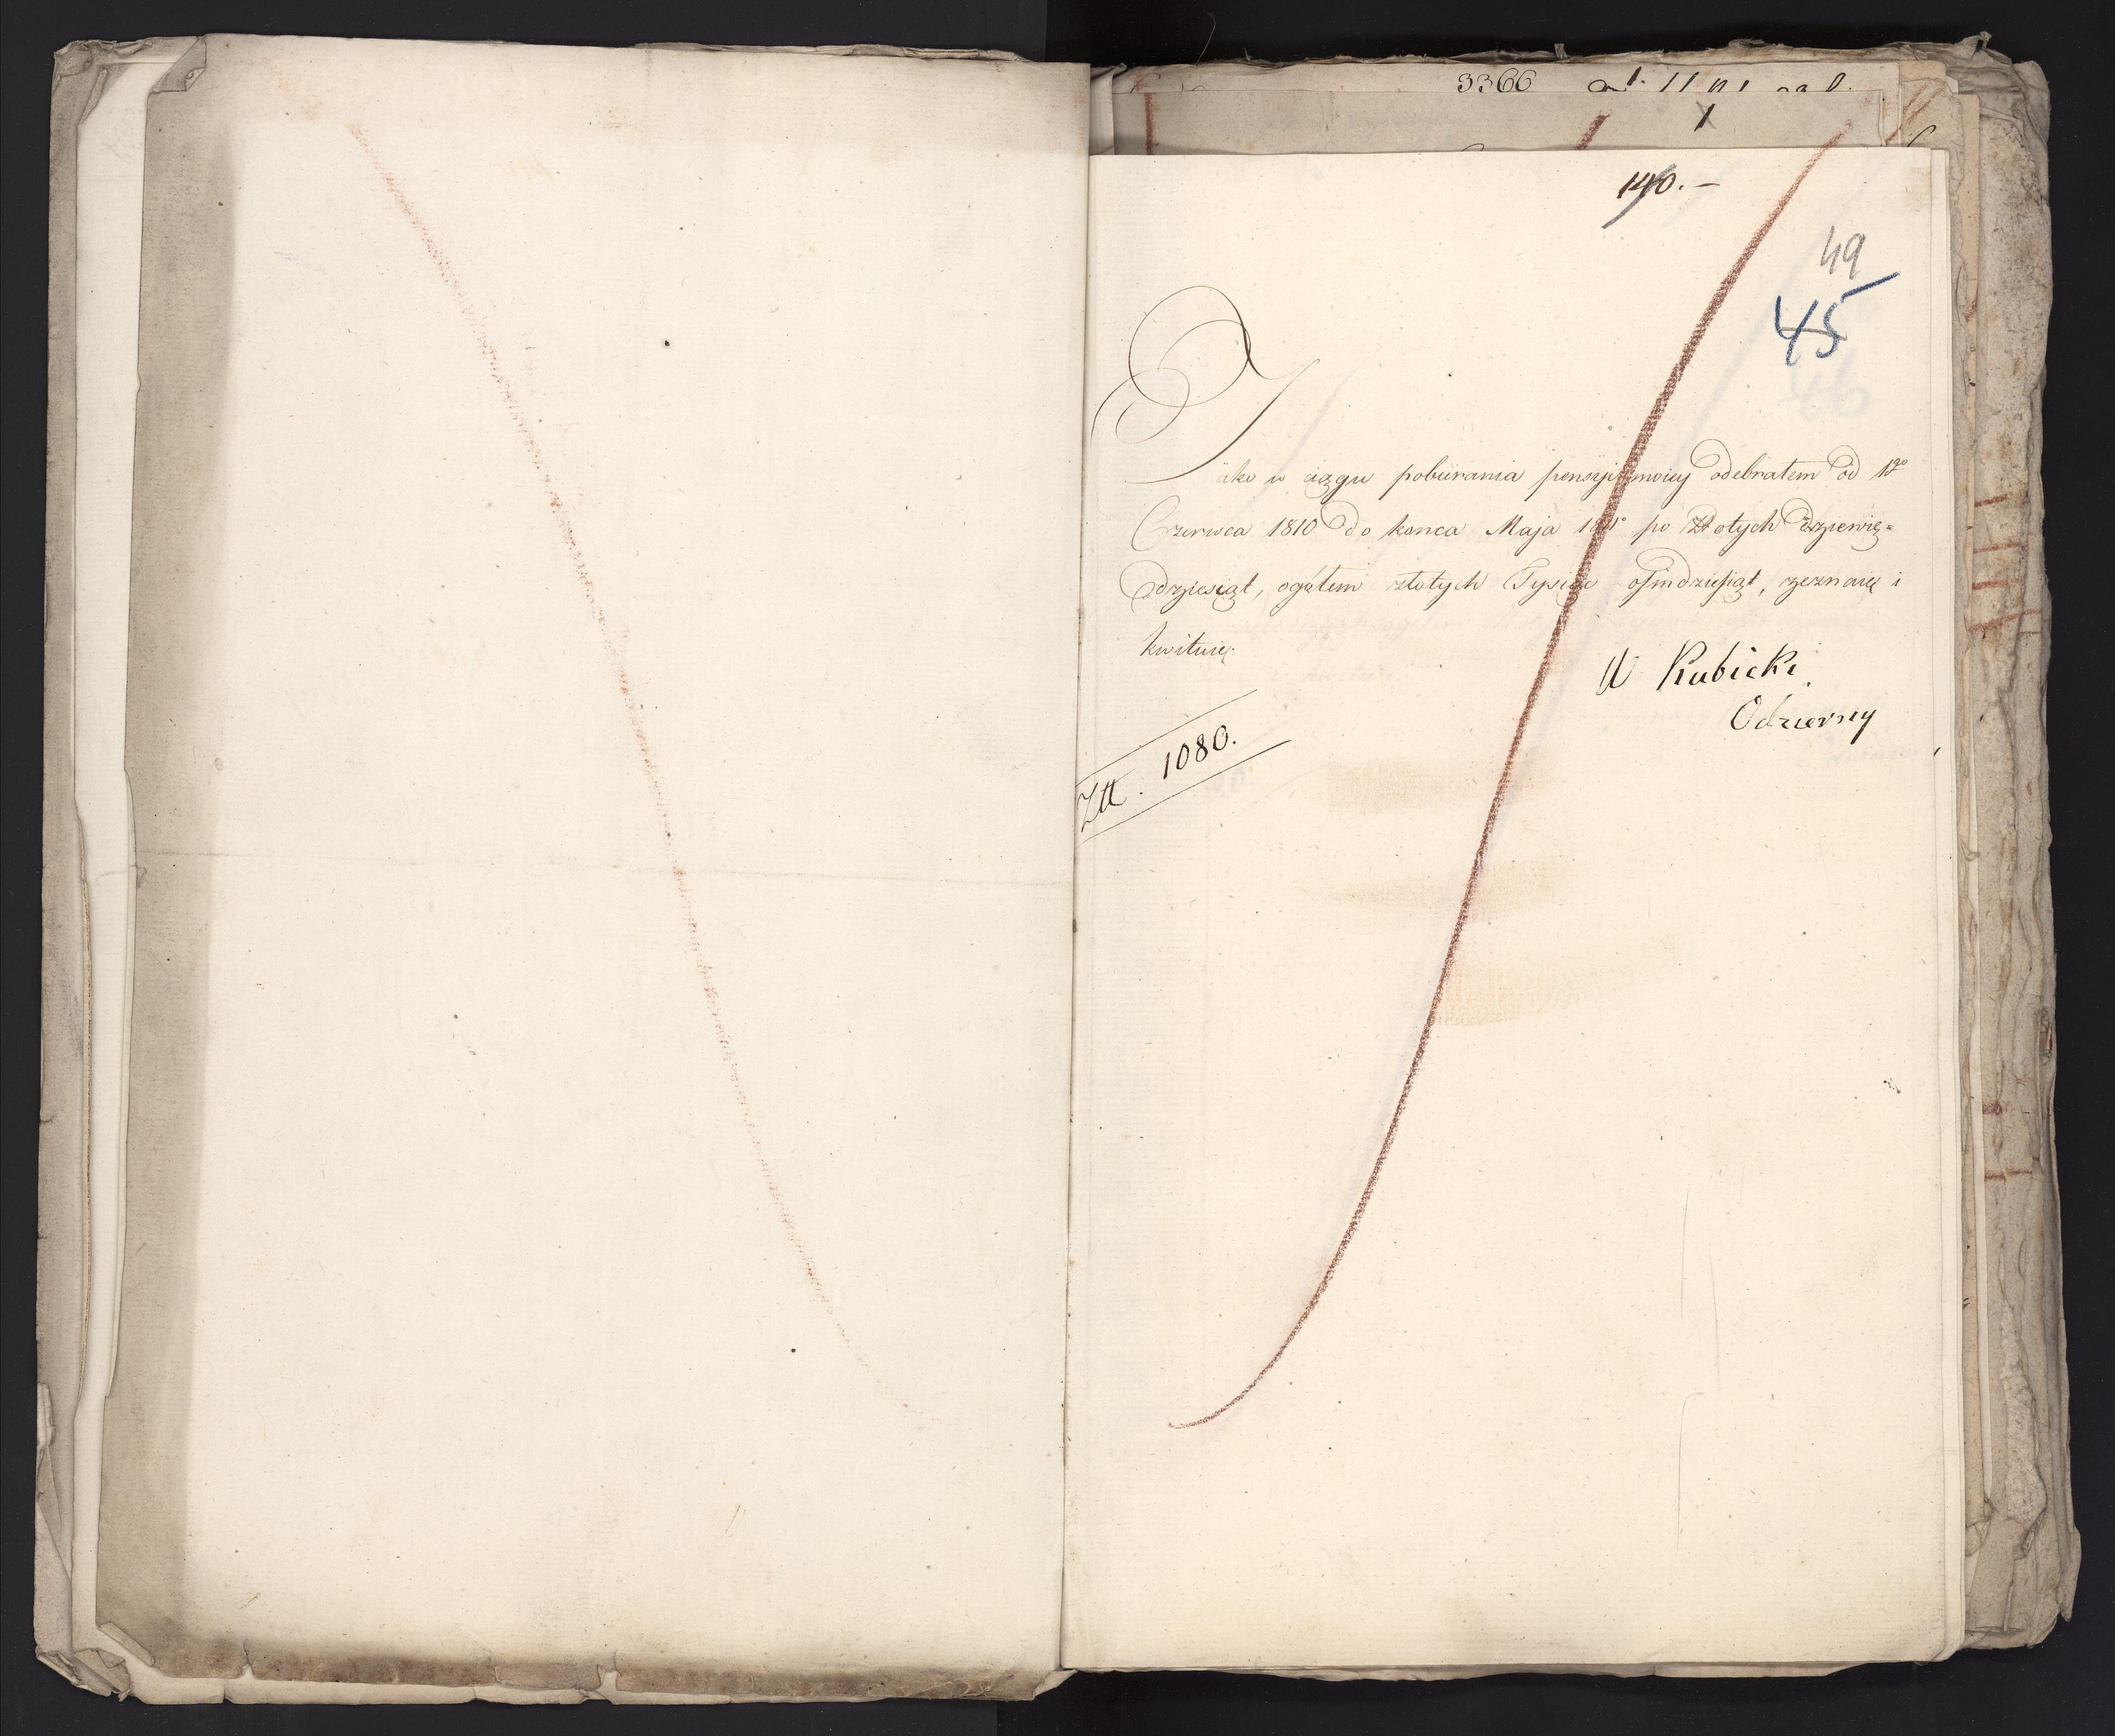 3366
140. –
49
45
Jako w ciągu pobierania pensyji moiey odebrałem od 1go
Czerwca 1810 do konca Maja 1811o po Złotych dziewię=
dziesiąt, ogółem złotych Tysiąc osmdziesiąt, zeznaię i
kwituię.
W Kubicki
Odzierny
Złł. 1080.